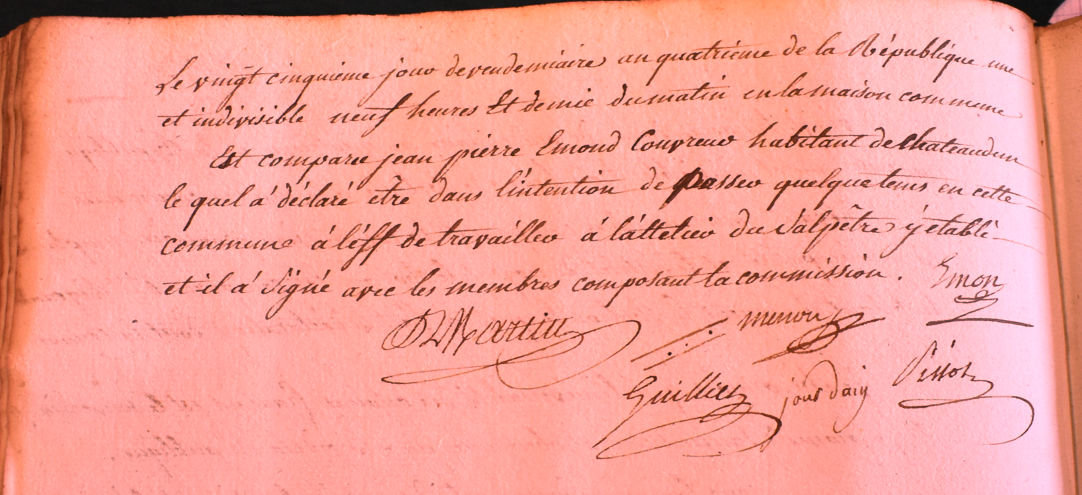 Le vingt cinquieme jour de vendemiaire an quatrieme de la République une
et indivisible neuf heures Et demie du matin en la maison commune
Est comparu jean pierre Emond Couvreur habitant de Chateaudun
le quel á déclaré etre dans l'intention de passer quelque tems en cette
commune á l'éff de travailler á l'attelier du Salpêtre ÿ établi
et il á Signé avec les membres composant la commission. Emon
Martin
menou
Guillier jourdain Pissot